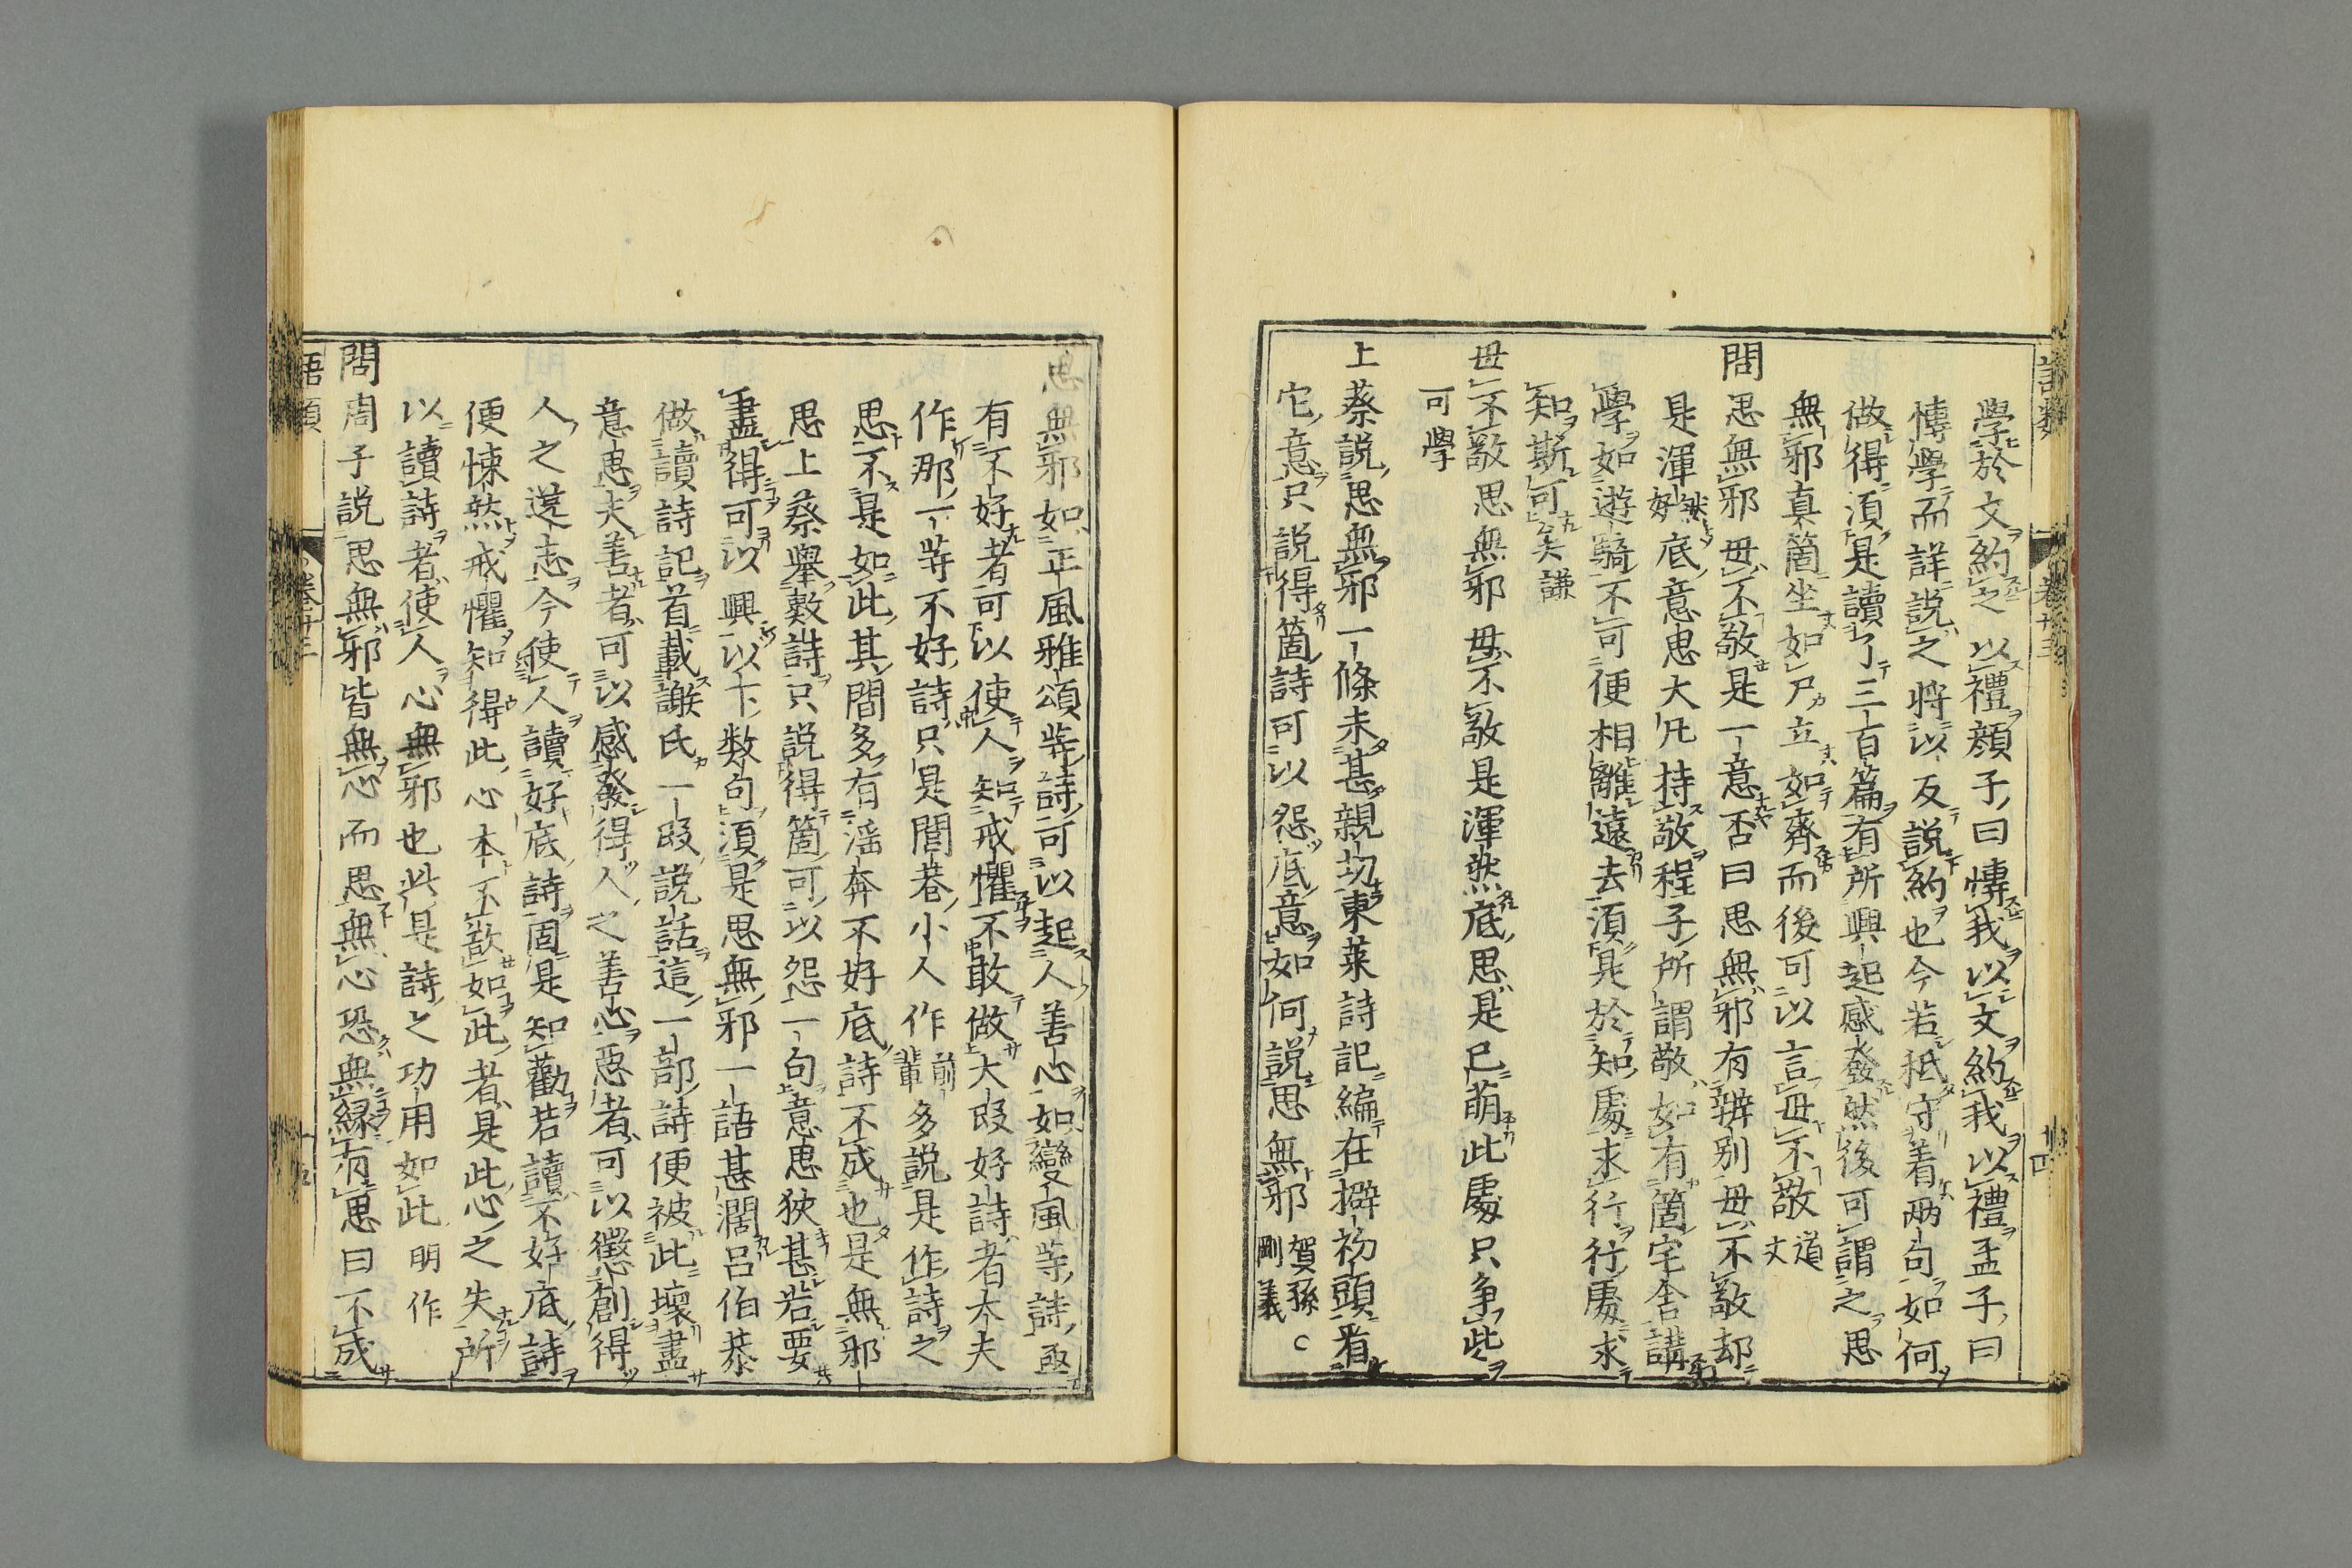 學於文約之以禮顏子曰博我以文約我以禮孟子曰
博學而詳說之將以反說約也今若秪守着兩句如何
做得須是讀了三百篇有所興起感發然後可謂之思
無邪真箇坐如尸立如齊而後可以言毋不敬道夫
問思無邪毋不敬是一意否曰思無邪有辨别毋不敬却
是渾然好底意思大凡持敬程子所謂敬如有箇宅舍講
學如遊騎不可便相離遠去須是於知處求行行處求
知斯可矣謙
毋不敬思無邪毋不敬是渾然底思是已萌此處只争些
可學
上蔡說思無邪一條未甚親切東萊詩記編在擗初頭看
它意只說得箇詩可以怨底意如何說思無邪賀孫剛義
思無邪如正風雅頌等詩可以起人善心如變風等詩極
有不好者可以使人知戒懼不敢做大段好詩者大夫
作那一等不好詩只是閭巷小人作前輩多說是作詩之
思不是如此其間多有滛奔不好底詩不成也是無邪
思上蔡舉數詩只說得箇可以怨一句意思狹甚若要
盡得可以興以下數句須是思無邪一語甚濶呂伯恭
做讀詩記首載謝氏一段說話這一部詩便被此壞盡
意思夫善者可以感發得人之善心惡者可以懲創得
人之逸志今使人讀好底詩固是知勸若讀不好底詩
便悚然戒懼知得此心本不欲如此者是此心之失所
以讀詩者使人心無邪也此是詩之功用如此明作
問周子說思無邪皆無心而思無心恐無縁有思曰不成
語類
卷廿三